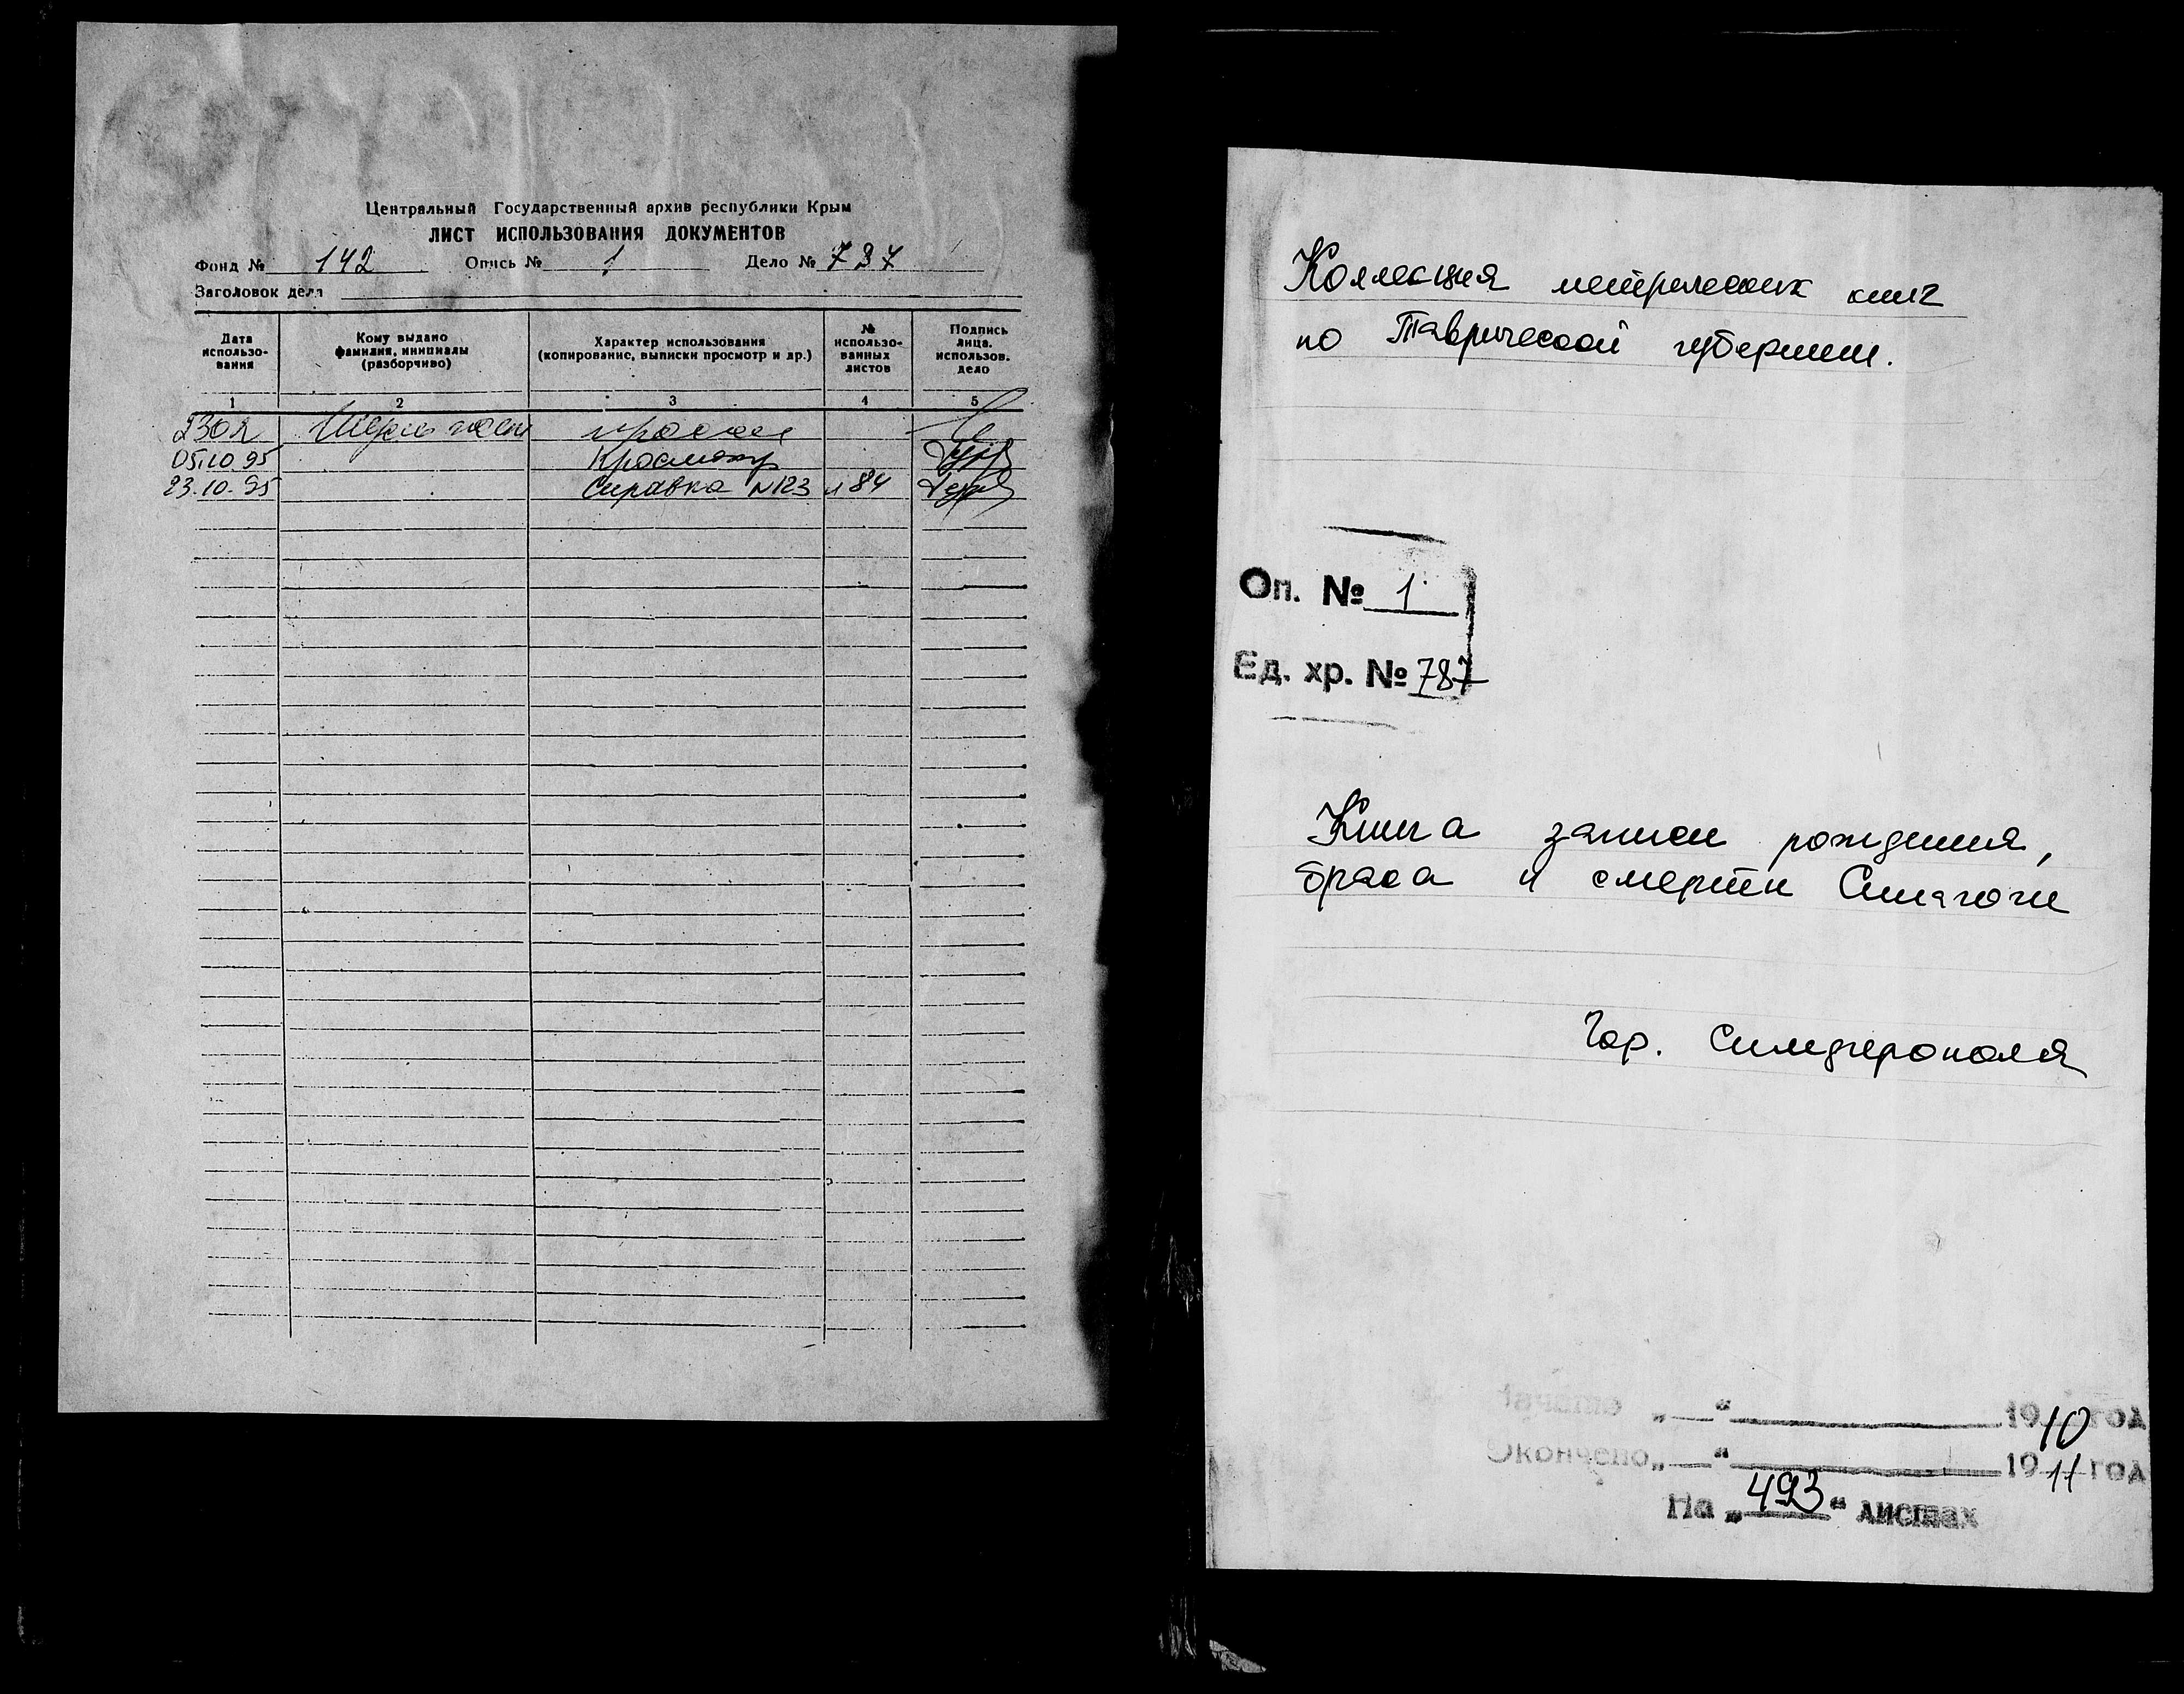 Центральный Государственный архив республики Крым
ЛИСТ ИСПОЛЬЗОВАНИЯ ДОКУМЕНТОВ
Фонд № 142 Опись № 1 Дело № 787
Заголовок дела
Дата использо-вания Кому выдано фамилия, инициалы (разборчиво) Характер использования (копирование, выписки просмотр и др.) № использо-ванных листов Подпись лица. использов. дело
1 2 3 4 5
просм
05.10.95 Просмотр
23.10.95 Справка №123 л 84
Коллекция метрических книг
по Таврической губернии.
Оп. № 1
Ед. хр. № 787
Книга записи рождения,
брака и смерти Синагоги
Гор. Симферополя
Начато „ “ 1910 год
Окончено „ “ 1911 год
На „493“ листах